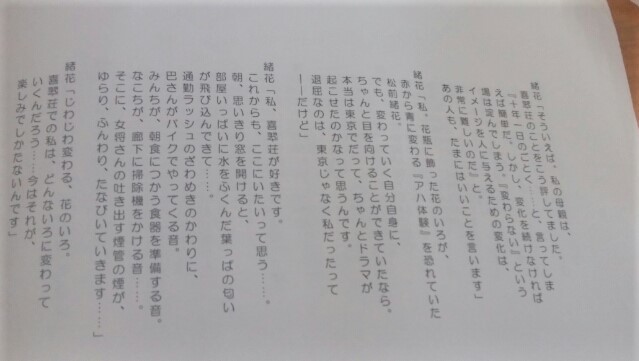 緒花「そういえば、私の母親は、
喜翆荘のことをこう評してました。
『十年一日のごとく、……と、言ってしま
えば簡単だ。しかし、変化を続けなければ
場は淀んでしまう。『変わらない』という
イメージを人に与えるための変化は、
非常に難しいのだ』と。
あの人も、たまにはいいことを言います」
緒花「私、花瓶に飾った花のいろが、
赤から青に変わる『アハ体験』を恐れていた
松前緒花。
でも、変わっていく自分自身に、
ちゃんと目を向けることができていたなら。
本当は東京でだって、ちゃんとドラマが
起こせたのかなって思うんです。
退屈なのは、東京じゃなく私だったって
――だけど」
緒花「私、喜翆荘が好きです。
これからも、ここにいたいって思う……。
朝、思いきり窓を開けると、
部屋いっぱいに水をふくんだ葉っぱの匂い
が飛び込んできて……。
通勤ラッシュのざわめきのかわりに、
巴さんがバイクでやってくる音。
みんちが、朝食につかう食器を準備する音。
なこちが、廊下に掃除機をかける音……。
そこに、女将さんの吐き出す煙管の煙が、
ゆらり、ふんわり、たなびいていきます……」
緒花「じわじわ変わる、花のいろ。
喜翆荘での私は、どんないろに変わって
いくんだろう……今はそれが、
楽しみでしかたないんです」